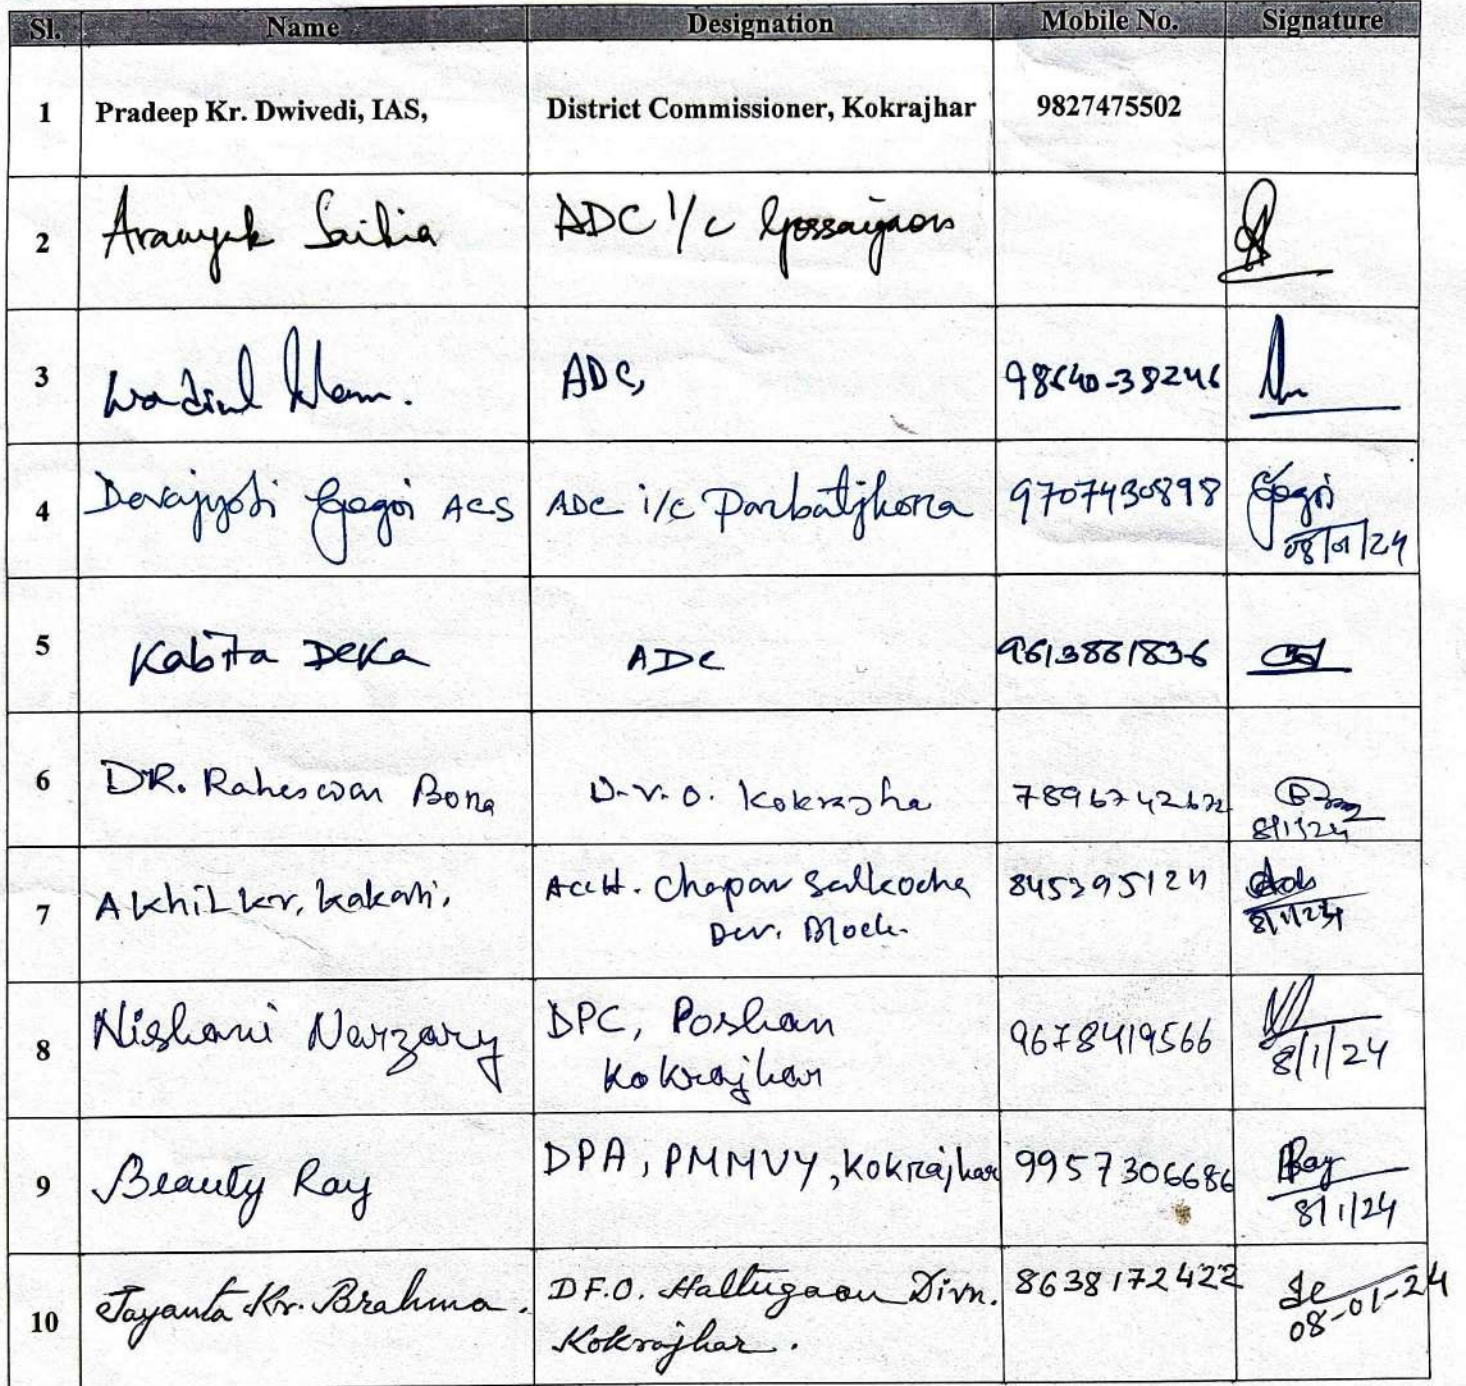 Sl. Name Designation Mobile No. Signature
1 Pradeep Kr. Dwivedi, IAS, District Commissioner, Kokrajhar 9827475502
2 Aranyak Saikia ADC i/c Gossaigaon
3 ADC, 98640-38246
4 Devajyoti Gogoi ACS ADC i/c Parbatjhora 9707430898 Gogoi
08/01/24
5 Kabita Deka ADC 9613861836
6 DR. Raheswar Bora D.V.O. Kokrajha
8/1/24
7 Akhil kr. kakati, Acctt. Chapar Salkocha 845395121
Dev. Block.
8/1/24
8 Nishani Narzary DPC, Poshan
Kokrajhar 9678419566
8/1/24
9 Beauty Ray DPA, PMMVY, Kokrajhar 9957306686 Ray
8/1/24
10 Jayanta Kr. Brahma. DF.O. Haltugaon Divn. 8638172422
Kokrajhar. 08-01-24